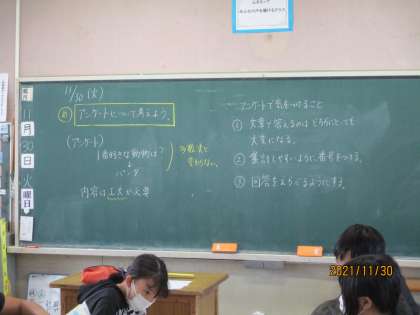 11/30 (火)
め アンケートについて考えよう。
(アンケート)
1番好きな動物は?
↓
パンダ
内容は工夫が必要
アンケートで気をつけること
① 文章で答えるのはどちらにとっても
大変になる。
② 集計しやすいように番号をつける。
③ 回答をえらべるようにする。
11
月
30
日
火
曜日
2021/11/30